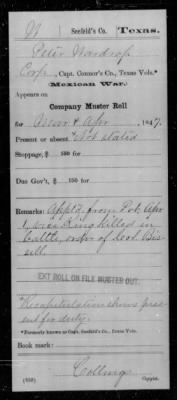 W | Seefeld's Co. | Texas.
Peter Wardrop
Corp., Capt. Connor's Co., Texas Vols.*
(Mexican War.)
Appears on
Company Muster Roll
for & Apr, 1847.
Present or absent Not stated
Stoppage, $ 100 for
Due Gov't, $ 100 for
Remarks: Appt'd from Pvt. Apr
1, vice King killed in
battle, order of Col. Bis-
sell.
EXT ROLL ON FILE MUSTER OUT.
Recapitulation shows pres-
ent for duty.
*Formerly known as Capt. Seefeld's Co., Texas Vols.
Book mark:
Collins
(859) Copyist.